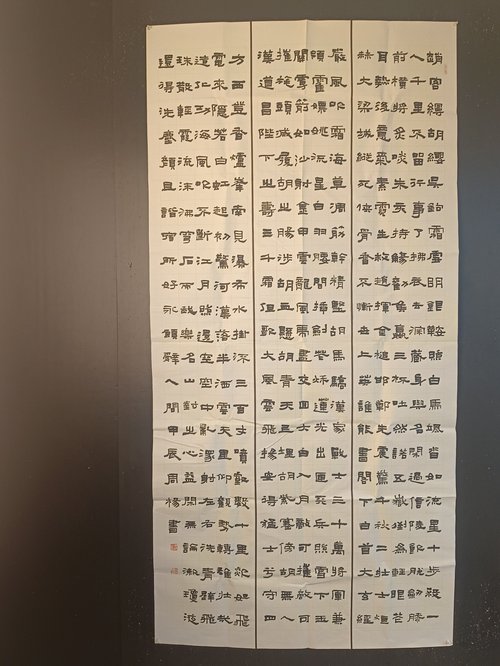 趙客縵胡纓吳鉤霜雪明銀鞍照白馬颯沓如流星十步殺一
人千里不留行事了拂衣去深藏身與名閑過信陵飲脫劍膝
前橫將炙啖朱亥持觴勸侯嬴三杯吐然諾五嶽倒為輕眼花
耳熱後意氣素霓生救趙揮金槌邯鄲先震驚千秋二壯士烜
赫大梁城縱死俠骨香不慚世上英誰能書閣下白首太玄經
嚴風吹霜海草凋筋幹精堅胡馬驕漢家戰士三十萬將軍兼
領霍嫖姚流星白羽腰間插劍花秋蓮光出匣天兵照雪下玉
關虜箭如沙射金甲雲龍風虎盡交回太白入月敵可摧敵可
摧旄頭滅履胡之腸涉胡血懸胡青天上埋胡紫塞傍胡無人
漢道昌陛下之壽三千霜但歌大風雲飛揚安得猛士兮守四
方西登香爐峯南見瀑布水掛流三百丈噴壑數十里欻如飛
電來隱若白虹起初驚河漢落半灑雲天裏仰觀勢轉雄壯哉
造化功海風吹不斷江月照還空空中亂潈射左右洗青壁飛
珠散輕霞流沫沸穹石而我樂名山對之心益閑無論漱瓊液
還得洗塵顏且諧宿所好永願辭人間甲辰周楊書